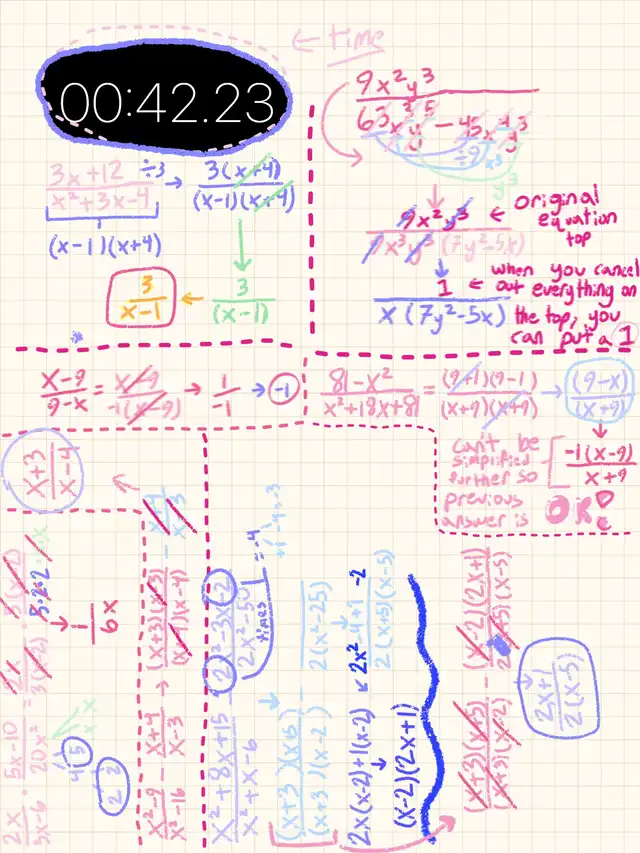 ← time
00:42.23
(3x+12)/(x²+3x-4) ÷3 → 3(x+4)/(x-1)(x+4)
(x-1)(x+4)
3/(x-1) ← 3/(x-1)
9x²y³
63x³y⁵ - 45x⁴y³
÷9 x³
y³
9x²y³ ← original
equation
top
9x³y³(7y²-5x)
1 ← when you cancel
out everything on
the top, you
can put a 1
x(7y²-5x)
(x-9)/(9-x) = (x-9)/-1(x-9) → 1/-1 → -1
(81-x²)/(x²+18x+81) = (9+1)(9-1)/(x+9)(x+9) → (9-x)/(x+9)
can't be
simplified
further so
previous
answer is OK!
-1(x-9)/(x+9)
(x+3)/(x-4)
2x/(3x-6) · (5x-10)/(20x²)
4 5
2 2
→ 1/6x
(x²-9)/(x²-16) - (x+4)/(x-3) → (x+3)(x-3)/(x+4)(x-4)
(x²+8x+15)/(x²+x-6) - (2x²-3x-2)/(2x²-50)
times = -4
+1 -4 = -3
2(x²-25)
2x²-4+1-2
2(x+5)(x-5)
2x(x-2)+1(x-2)
(x-2)(2x+1)
(x+3)(x+5)/(x+3)(x-2) - (x-2)(2x+1)/2(x+5)(x-5)
(2x+1)/2(x-5)